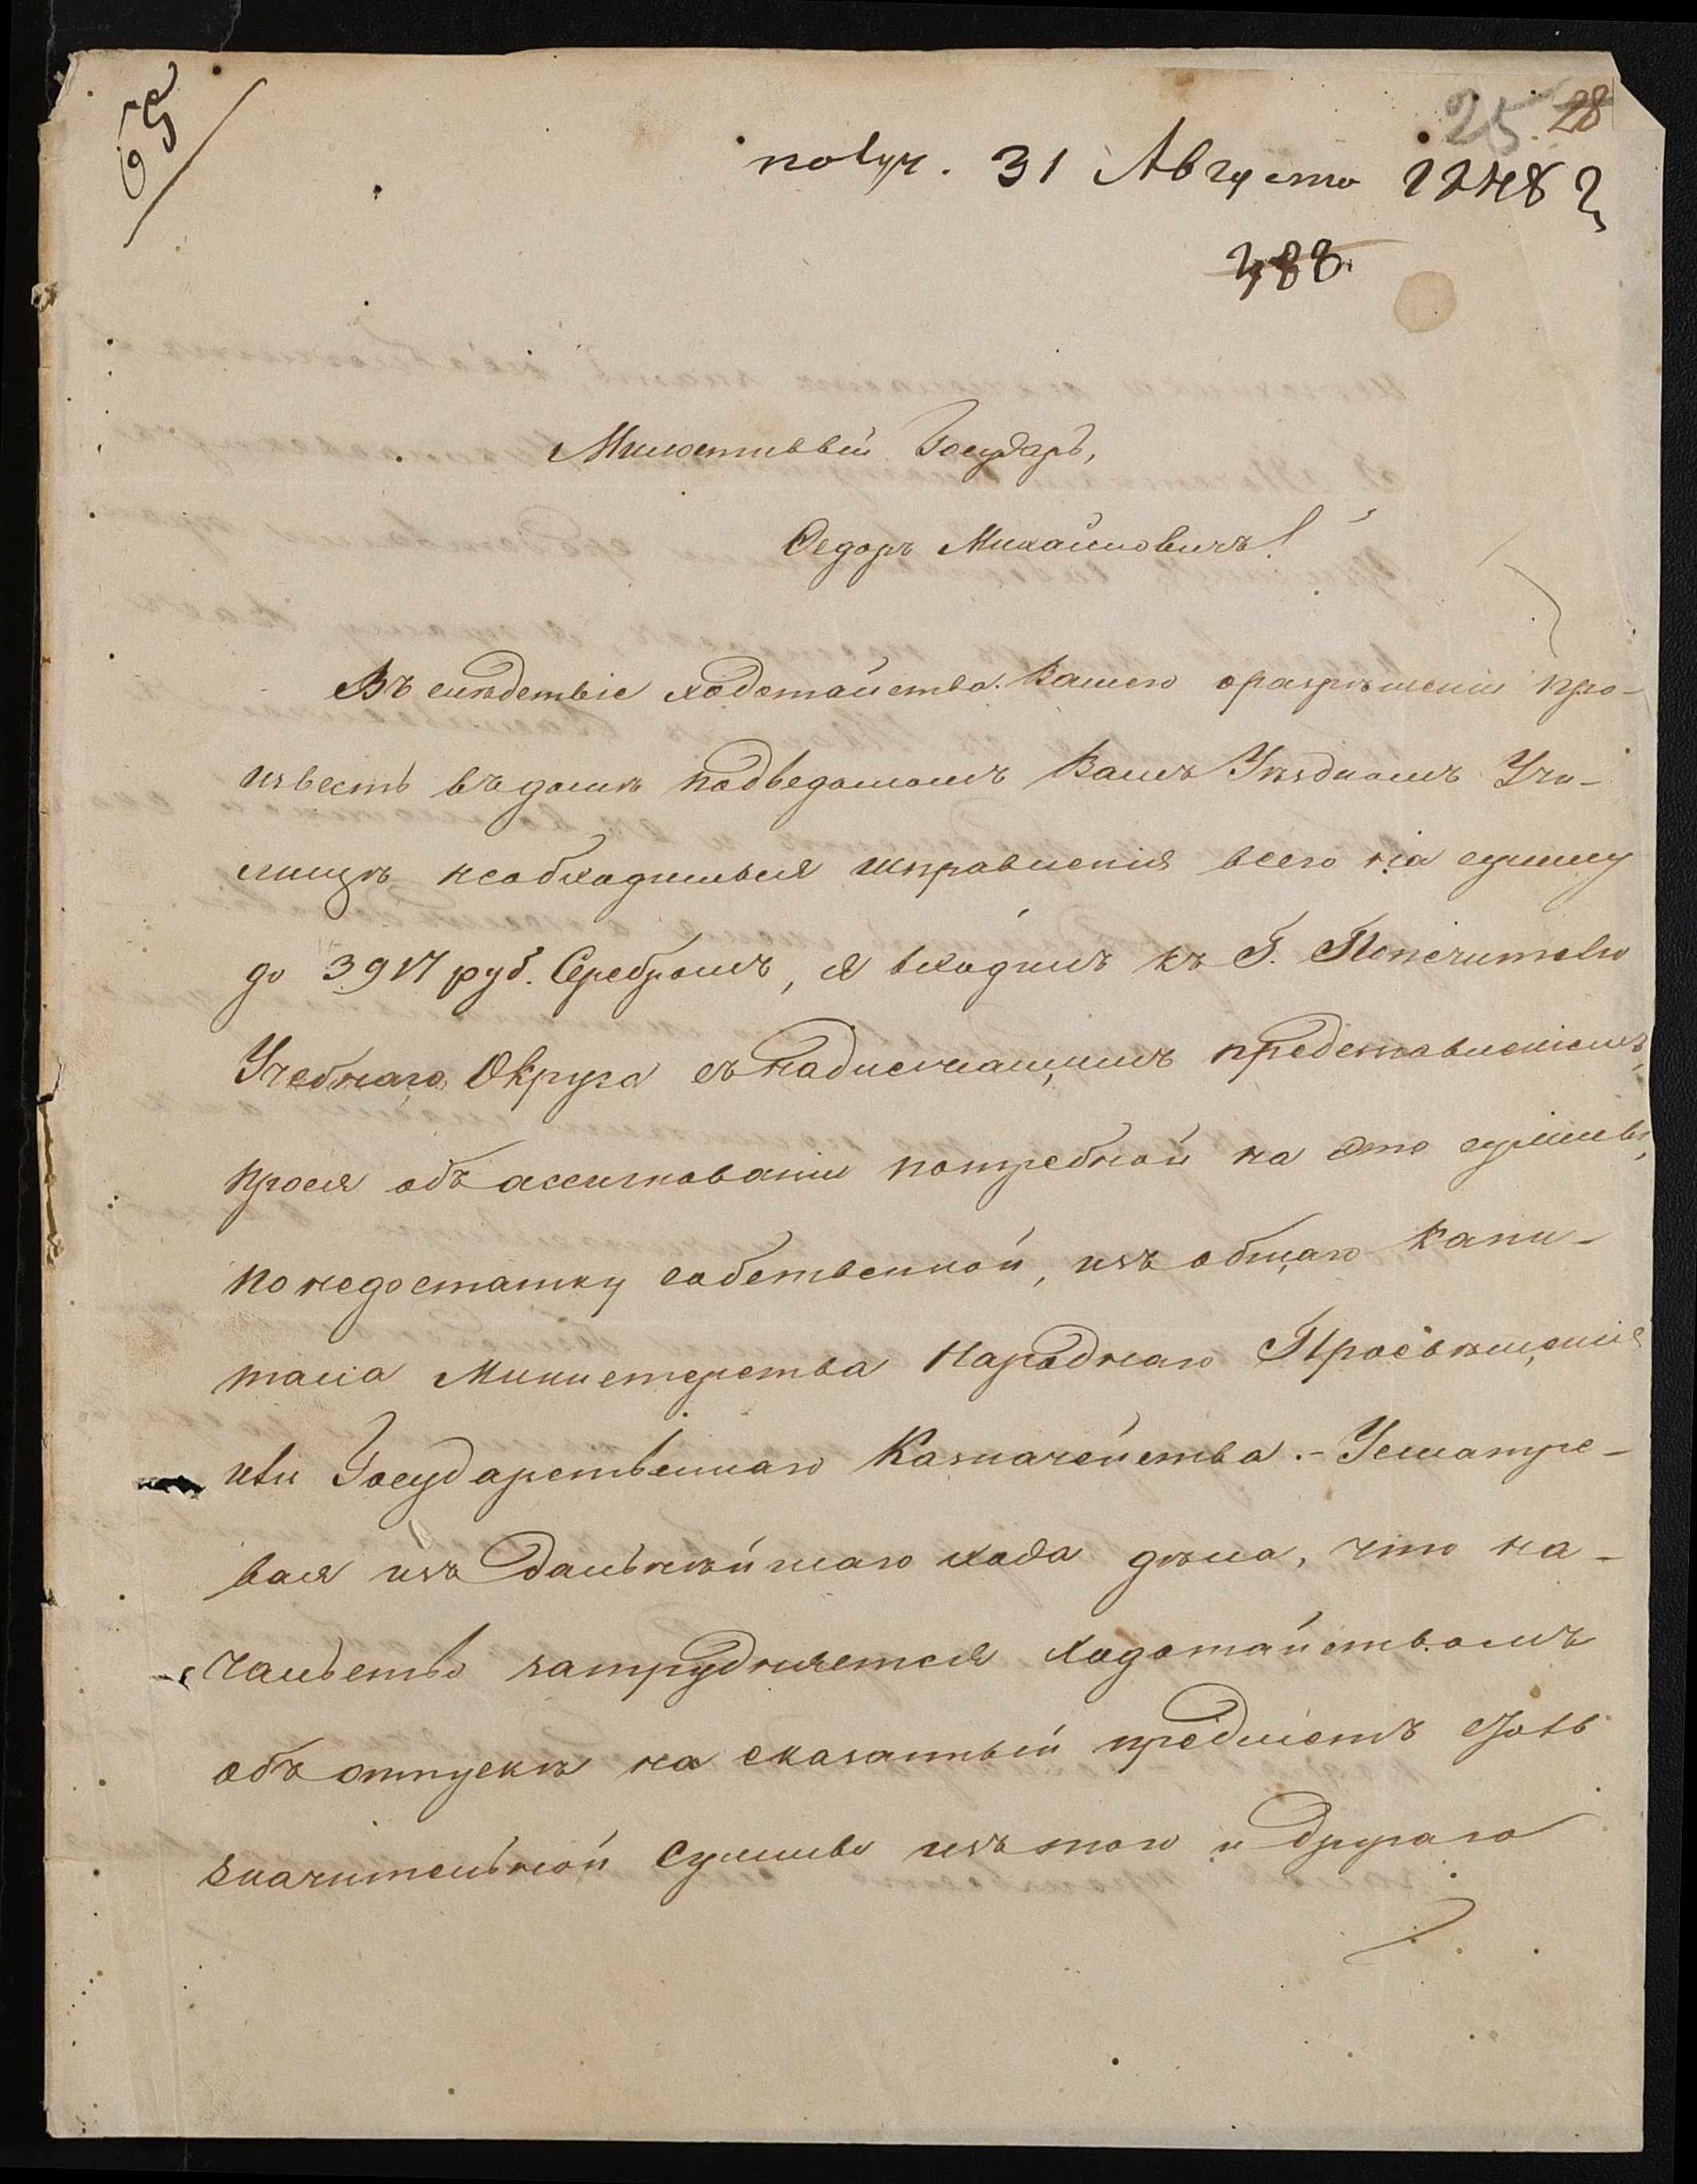 25 28
получ. 31 Августа 1848 г.
388.
Милостивый Государь,
Федоръ Михайловичъ!
Въ слѣдствіе ходотайства Вашего о разрѣшеніи про-
известь въ домѣ подведомомъ Вамъ Уѣздномъ Учи-
лищѣ необходимыя исправленія всего на сумму
до 3917 руб. Серебромъ, я входилъ къ Г. Попечителю
Учебнаго Округа съ надлежащимъ представленіемъ,
прося объ ассигнованіи потребной на это суммы,
по недостатку собственной, изъ общаго Капи-
тала Министерства Народнаго Просвѣщенія
или Государственнаго Казначейства. - Усматри-
вая изъ дальнѣйшаго хода дѣла, что на-
чальство затрудняется ходотайствомъ
объ отпускѣ на сказанный предметъ столь
значительной суммы изъ того и другаго